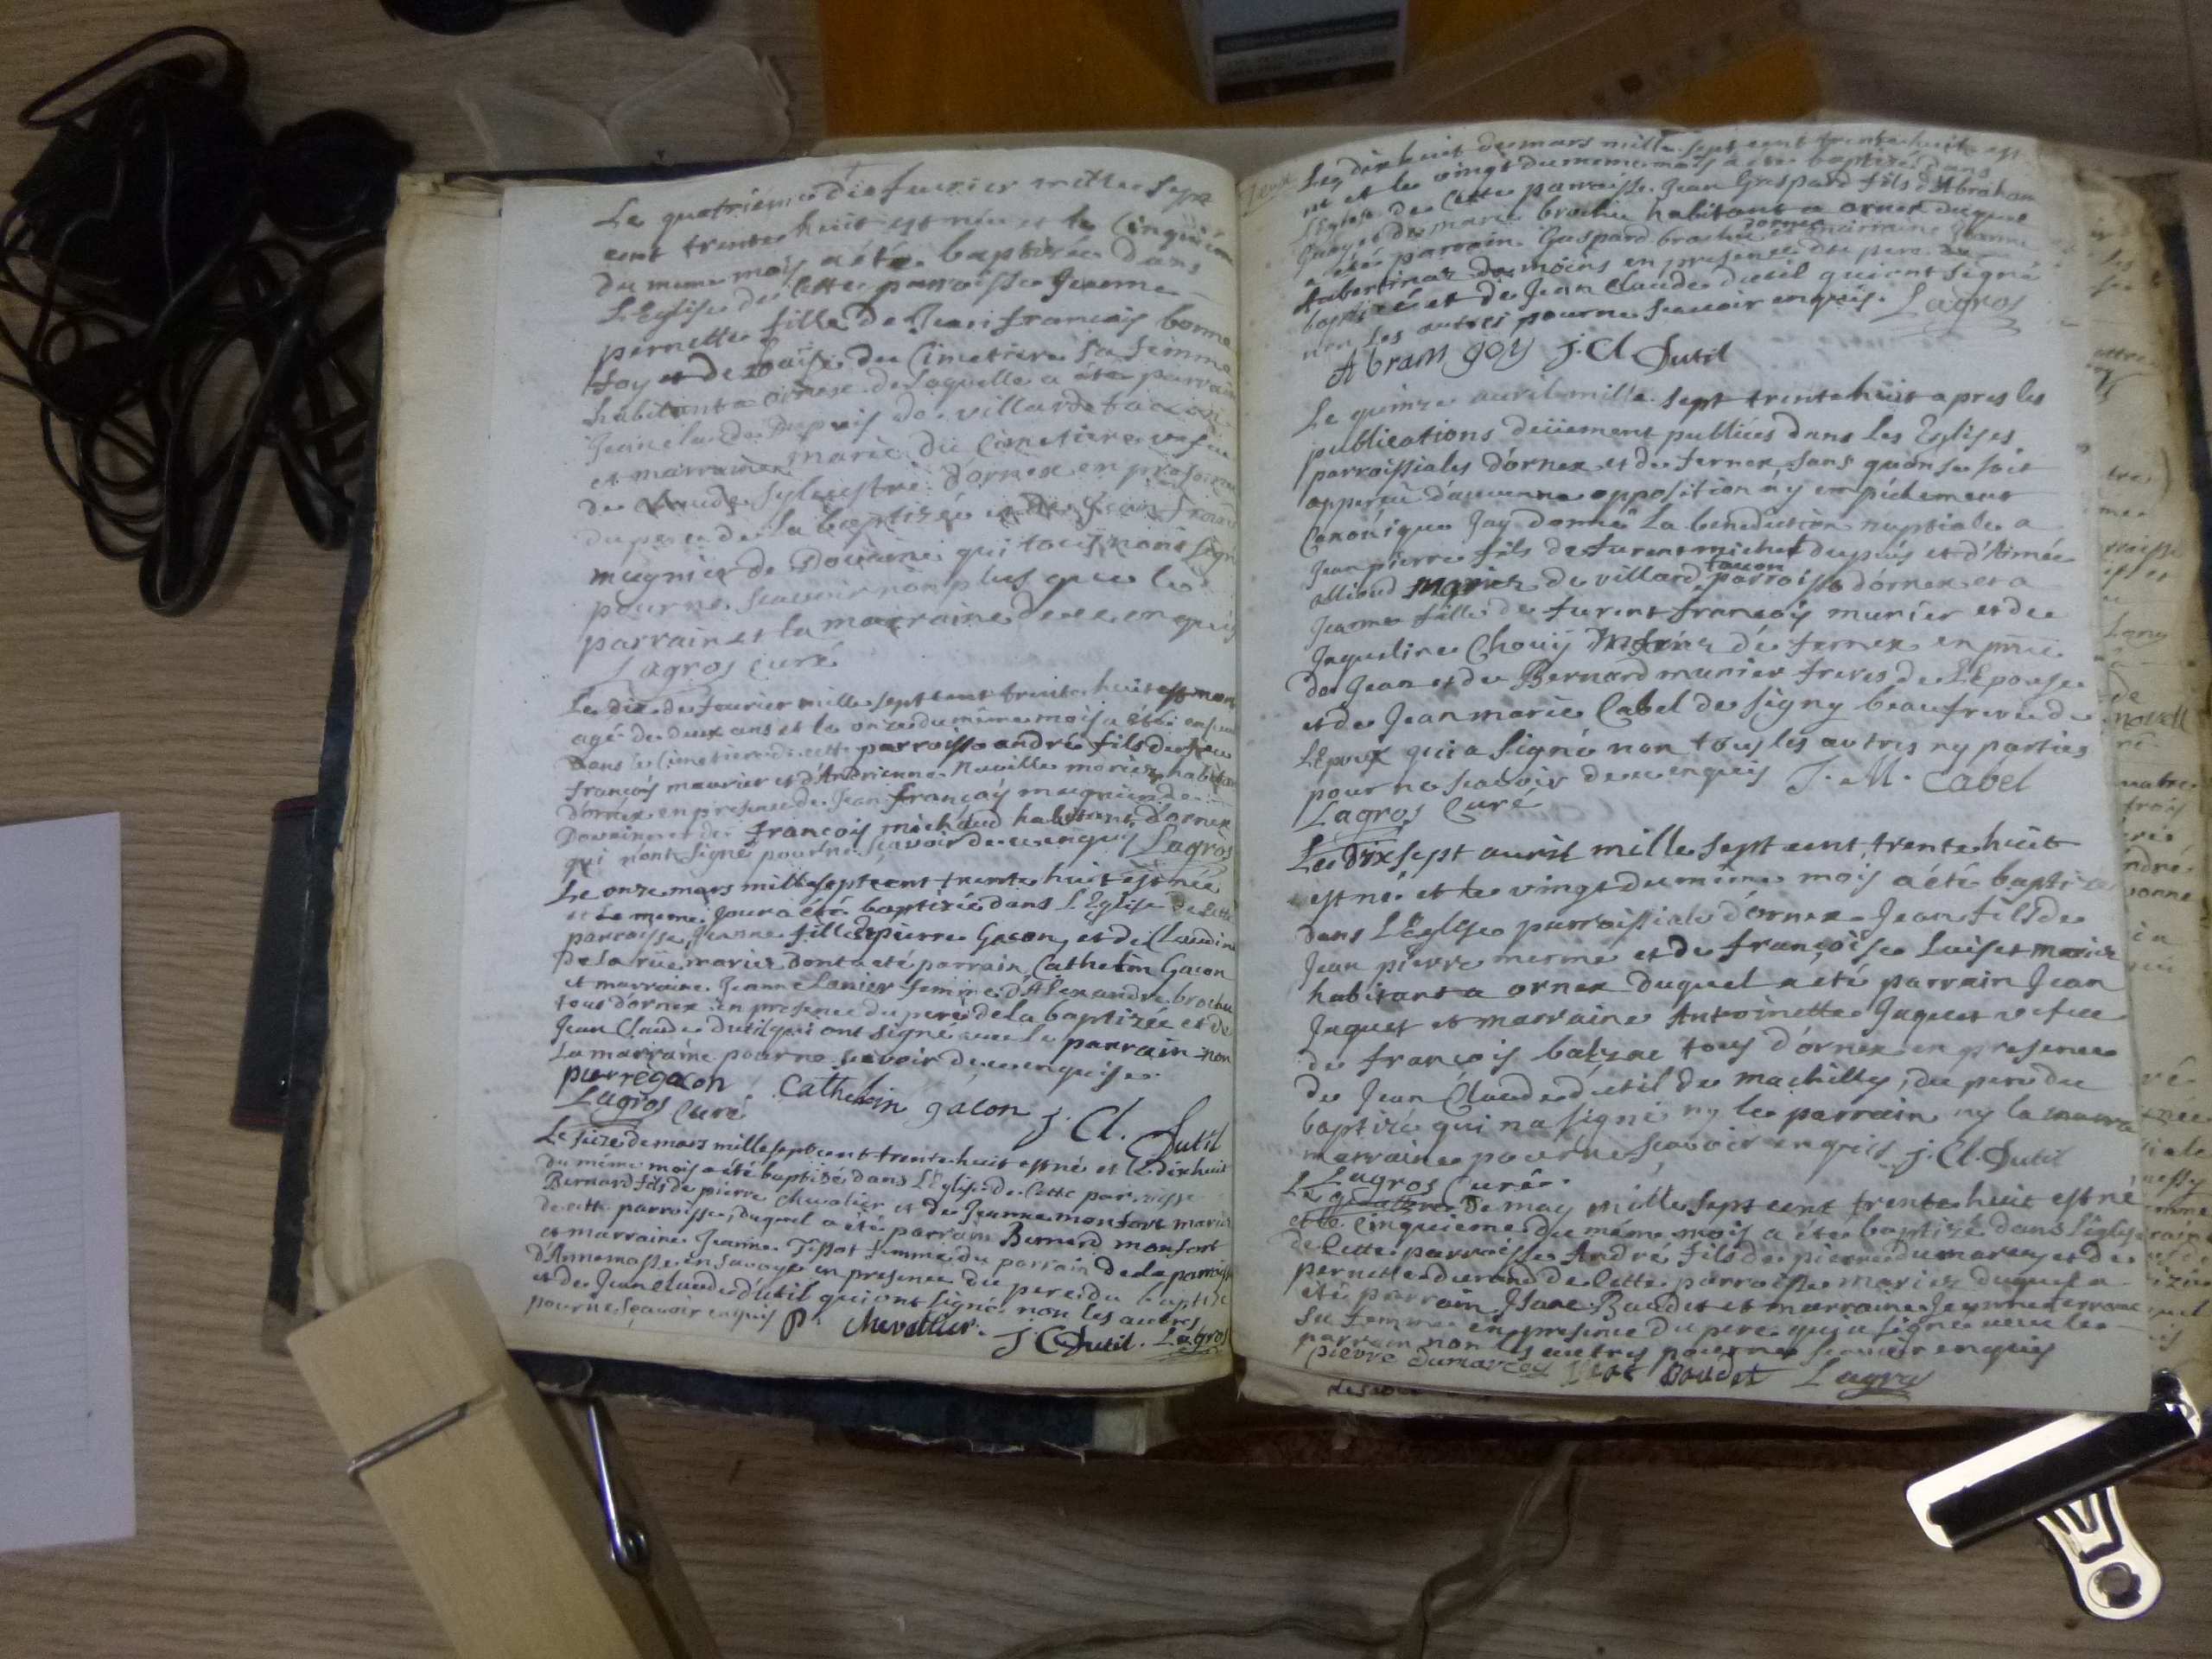 Le quatrieme de feurier mille sept
cent trente huit est née et le Cinquiem
du meme mois a été baptisée dans
L'Eglise de Cette parroisse Jeanne
pernette fille de Jean francois bonne
foy et de Loüise du Cimetiere sa femme
habitant a ornex de laquelle a été parrain
Jean claude Dupuis de villard tacon
et marraine marie du Cimetiere vefue
de Claude Syluestre d'ornex en presence
du pere de la baptizée et de Jean francois
mugnier de Douaine qui tous n'ont signé
pour ne scauoir non plus que le
parrain et la marraine de ce enquis
Lagros curé
Le dix de feurier mille sept cent trente huit est mort
agé de deux ans et le onze du même mois a été enseueli
dans le Cimetiere de cette parroisse andré fils de
francois meurier et d'Andrienne Nauille mariez habitans
d'ornex en presence de Jean françois mugnier de
Douaine et de francois michaud habitant d'ornex
qui n'ont signé pour ne scavoir de ce enquis Lagros
Le onze mars mille sept cent trente huit est née
et Le meme Jour a été baptizée dans L'Eglise de Cette
parroisse, Jeanne fille de pierre Gacon, et de Claudine
De la rüe mariez dont a eté parrain Cathelin Gacon
et marraine Jeanne Lanier femme d'Alexandre brochu
tous d'ornex en presence du pere de la baptizée et de
Jean Claude Dutil qui ont signé auec le parrain non
La marraine pour ne scavoir de ce enquise
pierre gacon Cathelin gacon J. Cl. Dutil
Lagros Curé
Le seize de mars mille sept cent trente huit est né et le dix huit
du même mois a été baptisé dans L'Eglise de Cette parroisse
Bernard fils de pierre Chevalier et de Jeanne monfort mariez
de cette parroisse, duquel a été parrain Bernard monfort
et marraine Jeanne Tissot femme du parrain de la parroisse
d'Annemasse en Sauoye en presence du pere du baptizé
et de Jean claude dutil qui ont signé non les autres
pour ne sçauoir enquis P. Chevallier. J C Dutil. Lagros
Le dix huit de mars mille sept cent trente huit est
né et le vingt du meme mois a été baptizé dans
L'Eglise de Cette parroisse Jean Gaspard fils d'Abraham
Goy et de marie brochu habitant a ornex duquel
a été parrain Gaspard brochu d'ornex et marraine Jeanne
Aubertinaz de moins en presence du pere du
baptizé et de Jean Claude dutil qui ont signé
non les autres pour ne scauoir enquis. Lagros
Abram goy J. Cl. Dutil
Le quinze auril mille sept trente huit apres les
publications deüement publiées dans Les Eglises
parroissiales d'ornex et de fernex, sans qu'on se soit
apperçu d'aucune opposition ny empéchement
Canonique Jay donné La benediction nuptiale a
Jean pierre fils de furent michel dupuis et d'Aimée
alliond mariez de villard tacon parroisse d'ornex et a
Jeanne fille de furent francois munier et de
Jaqueline Choüy mariez de fernex en pnce
de Jean et de Bernard munier freres de L'Epouse
et de Jean marie Cabel de signy beau frere de
L'Epoux qui a signé non tous les autres ny parties
pour ne scavoir de ce enquis J. M. Cabel
Lagros Curé
Le dix sept auril mille sept cent trente huit
est né et le vingt du même mois a été baptizé
dans L'Eglise parroissiale d'ornex Jean fils de
Jean pierre merme et de françoise Luiset mariez
habitant a ornex duquel a eté parrain Jean
Jaquet et marraine Antoinette Jaquet vefue
de françois balzac tous d'ornex en presence
de Jean Claude dutil de machilly, du pere du
baptizé qui n'a signé ny le parrain ny la marra
marraine pour ne scauoir enquis J. Cl. Dutil
Lagros Curé.
Le quatrieme de may mille sept cent trente huit est né
et le Cinquieme du même mois a été baptizé dans L'église
de Cette parroisse André fils de pierre dumarcey et de
pernette durand de Cette parroisse mariez duquel a
été parrain Isaac Baudet et marraine Jeanne
sa femme en presence du pere qui a signé auec le
parrain non les autres pour ne scauoir enquis
pierre dumarcey Isac Boudet Lagros